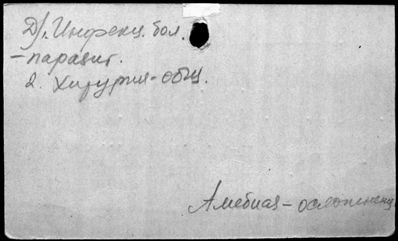 Д/. Инфекц. бол.
– паразит.
2. Хирургия – общ.
Амебиаз – осложнен